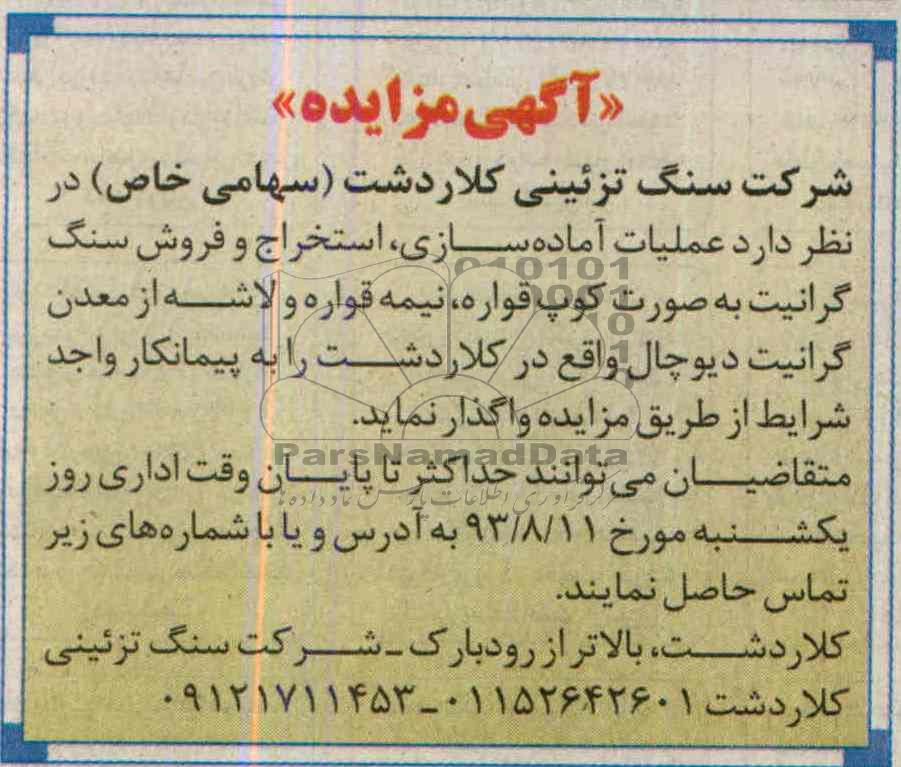 «آگهی مزایده»
شرکت سنگ تزئینی کلاردشت (سهامی خاص) در
نظر دارد عملیات آماده‌سازی، استخراج و فروش سنگ
گرانیت به صورت کوپ قواره، نیمه قواره و لاشه از معدن
گرانیت دیوچال واقع در کلاردشت را به پیمانکار واجد
شرایط از طریق مزایده واگذار نماید.
ParsNamadData
متقاضیان می‌توانند حداکثر تا پایان وقت اداری روز
یکشنبه مورخ ۹۳/۸/۱۱ به آدرس و یا با شماره‌های زیر
تماس حاصل نمایند.
کلاردشت، بالاتر از رودبارک ـ شرکت سنگ تزئینی
کلاردشت ۰۱۱۵۲۶۴۲۶۰۱ـ۰۹۱۲۱۷۱۱۴۵۳